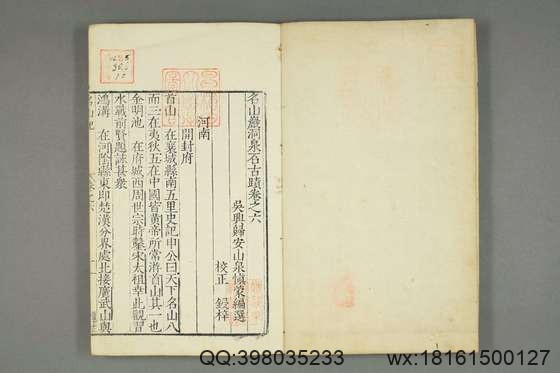 名山巖洞泉石古蹟卷之六
吳興歸安山泉慎蒙編選
校正 鋟梓
河南
開封府
首山 在襄城縣南五里史記申公曰天下名山八
而三在夷狄五在中國皆黃帝所常遊首山其一也
金明池 在府城西周世宗時鑿宋太祖幸此觀習
水戰前賢題詠甚衆
鴻溝 在河陰縣東即楚漢分界處北接廣武山與
QQ:398035233
wx:18161500127